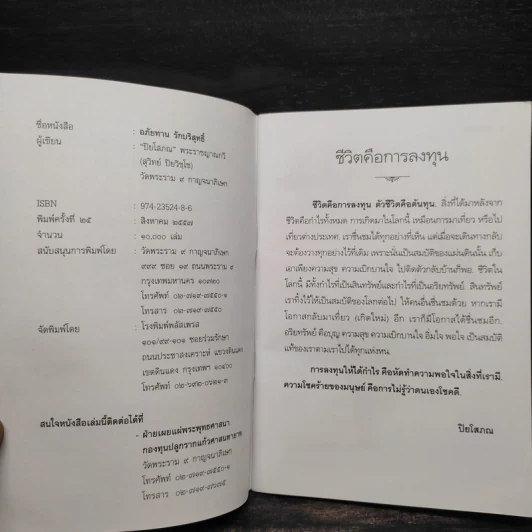 ชื่อหนังสือ : อภัยทาน รักบริสุทธิ์
ผู้เขียน : "ปิยโสภณ" พระราชญาณกวี
(สุวิทย์ ปิยวิชฺโช)
วัดพระราม ๙ กาญจนาภิเษก
ISBN : 974-23524-8-6
พิมพ์ครั้งที่ ๒๕ : สิงหาคม ๒๕๕๗
จำนวน : ๑๐,๐๐๐ เล่ม
สนับสนุนการพิมพ์โดย : วัดพระราม ๙ กาญจนาภิเษก
๙๙๙ ซอย ๑๙ ถนนพระราม ๙
กรุงเทพมหานคร ๑๐๓๒๐
โทรศัพท์ ๐๒-๗๑๙-๗๕๕๐-๑
โทรสาร
จัดพิมพ์โดย : โรงพิมพ์พลัสเพรส
๑๐๑/๙๙-๑๐๑ ซอยร่วมรักษา
ถนนประชาสงเคราะห์ แขวงดินแดง
เขตดินแดง กรุงเทพฯ ๑๐๔๐๐
โทรศัพท์ ๐๒-๖๙๒-๐๒๑๑-๓
สนใจหนังสือเล่มนี้ติดต่อได้ที่
- ฝ่ายเผยแผ่พระพุทธศาสนา
กองทุนปลูกรากแก้วศาสนทายาท
วัดพระราม ๙ กาญจนาภิเษก
โทรศัพท์ ๐๒-๗๑๙-๗๕๕๐-๑
โทรสาร ๐๒-๗๑๙-๗๖๗๕
ชีวิตคือการลงทุน
ชีวิตคือการลงทุน ตัวชีวิตคือต้นทุน. สิ่งที่ได้มาหลังจาก
ชีวิตคือกำไรทั้งหมด การเกิดมาในโลกนี้ เหมือนการมาเที่ยว หรือไป
เที่ยวต่างประเทศ. เราชื่นชมได้ทุกอย่างที่เห็น แต่เมื่อจะเดินทางกลับ
จะต้องวางทุกอย่างไว้ที่เดิม เพราะนั่นเป็นสมบัติของแผ่นดินนั้น. เก็บ
เอาเพียงความสุข ความเบิกบานใจ ไปติดตัวกลับบ้านก็พอ. ชีวิตใน
โลกนี้ มีทั้งกำไรที่เป็นสินทรัพย์และกำไรที่เป็นอริยทรัพย์. สินทรัพย์
เราทิ้งไว้ให้เป็นสมบัติของโลกต่อไป ให้คนอื่นชื่นชมด้วย หากเรามี
โอกาสกลับมาเที่ยว (เกิดใหม่) อีก เราก็มีโอกาสได้ชื่นชมอีก.
อริยทรัพย์ คือบุญ ความสุข ความเบิกบานใจ อิ่มใจ พอใจ เป็นสมบัติ
แท้ของเราตามเราไปได้ทุกแห่งหน.
การลงทุนให้ได้กำไร คือหัดทำความพอใจในสิ่งที่เรามี.
ความโชคร้ายของมนุษย์ คือการไม่รู้ว่าตนเองโชคดี.
ปิยโสภณ